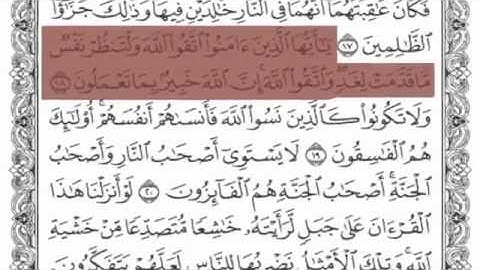 فَكَانَ عَٰقِبَتَهُمَآ أَنَّهُمَا فِي ٱلنَّارِ خَٰلِدَيۡنِ فِيهَاۚ وَذَٰلِكَ جَزَٰٓؤُاْ
ٱلظَّٰلِمِينَ ١٧ يَٰٓأَيُّهَا ٱلَّذِينَ ءَامَنُواْ ٱتَّقُواْ ٱللَّهَ وَلۡتَنظُرۡ نَفۡسٞ
مَّا قَدَّمَتۡ لِغَدٖۖ وَٱتَّقُواْ ٱللَّهَۚ إِنَّ ٱللَّهَ خَبِيرُۢ بِمَا تَعۡمَلُونَ ١٨
وَلَا تَكُونُواْ كَٱلَّذِينَ نَسُواْ ٱللَّهَ فَأَنسَىٰهُمۡ أَنفُسَهُمۡۚ أُوْلَٰٓئِكَ
هُمُ ٱلۡفَٰسِقُونَ ١٩ لَا يَسۡتَوِيٓ أَصۡحَٰبُ ٱلنَّارِ وَأَصۡحَٰبُ
ٱلۡجَنَّةِۚ أَصۡحَٰبُ ٱلۡجَنَّةِ هُمُ ٱلۡفَآئِزُونَ ٢٠ لَوۡ أَنزَلۡنَا هَٰذَا
ٱلۡقُرۡءَانَ عَلَىٰ جَبَلٖ لَّرَأَيۡتَهُۥ خَٰشِعٗا مُّتَصَدِّعٗا مِّنۡ خَشۡيَةِ
ٱللَّهِۚ وَتِلۡكَ ٱلۡأَمۡثَٰلُ نَضۡرِبُهَا لِلنَّاسِ لَعَلَّهُمۡ يَتَفَكَّرُونَ